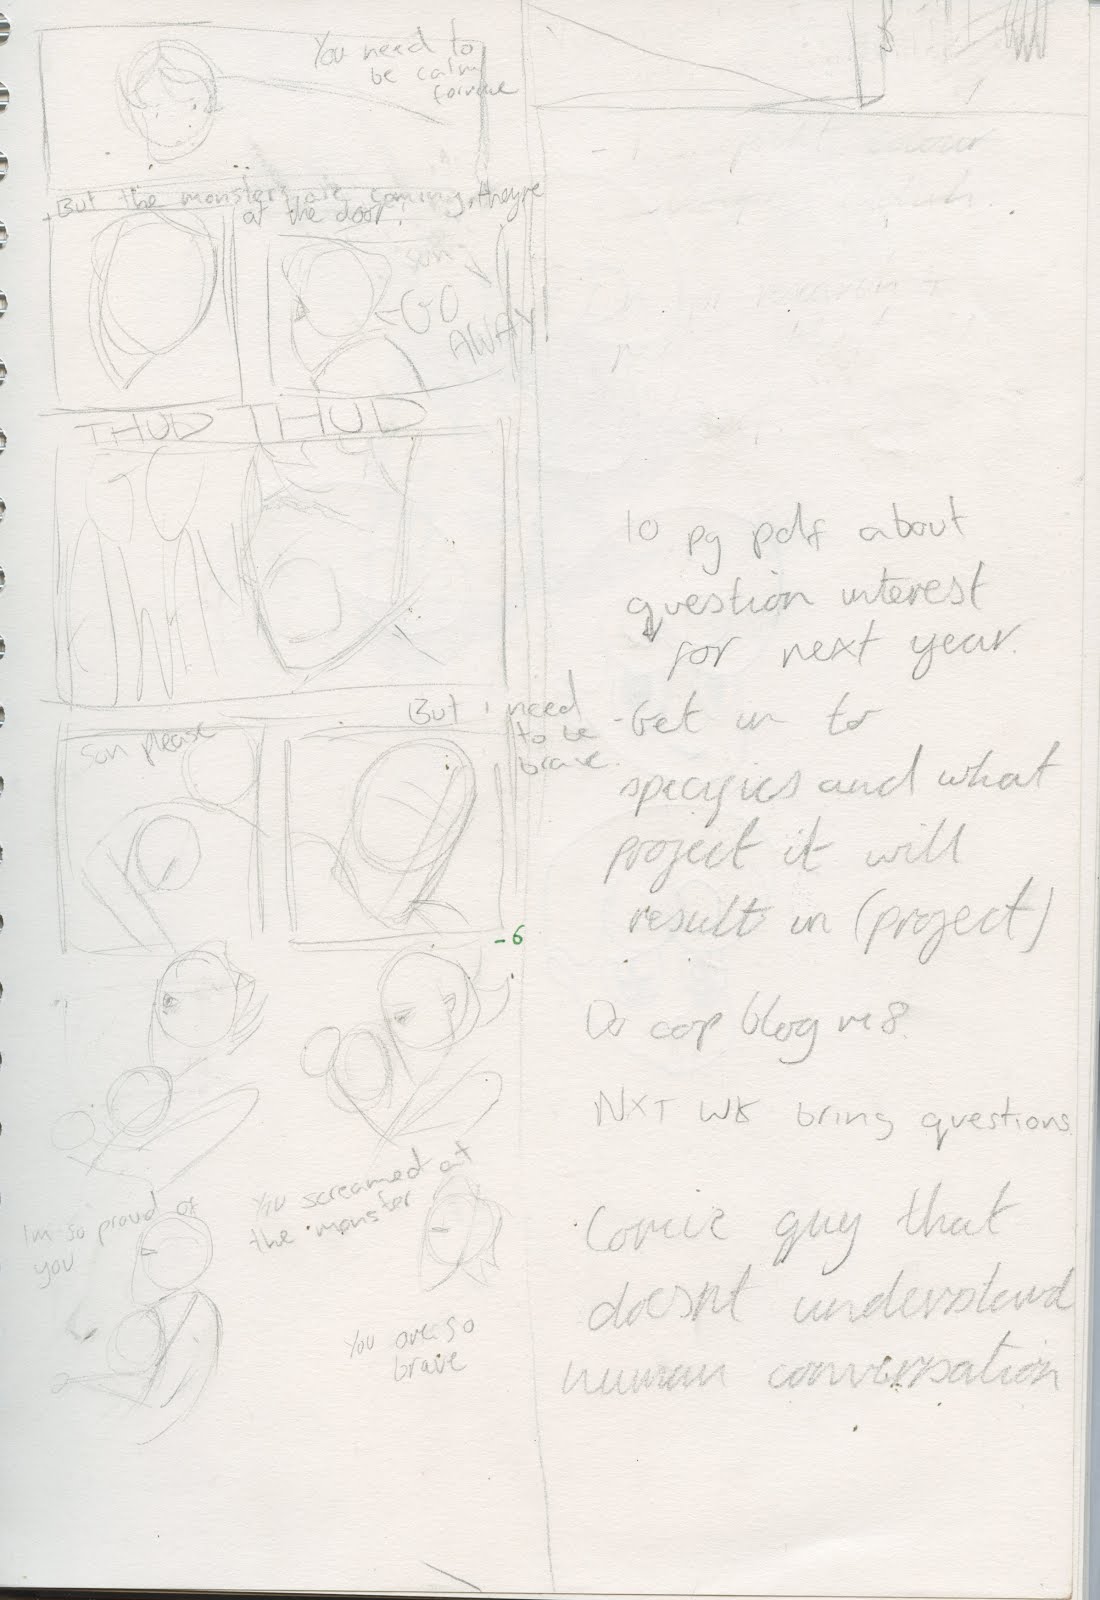 You need to
be calm
for me
But the monsters are coming, they're
at the door!
son
GO
AWAY!
THUD THUD
But i need
to be
brave.
son please
-6
Im so proud of
you
You screamed at
the monster
You are so
brave
10 pg pdf about
question interest
for next year.
-Get in to
specifics and what
project it will
result in (project)
Do cop blog re8.
NXT WK bring questions
Comic guy that
doesnt understand
human conversation